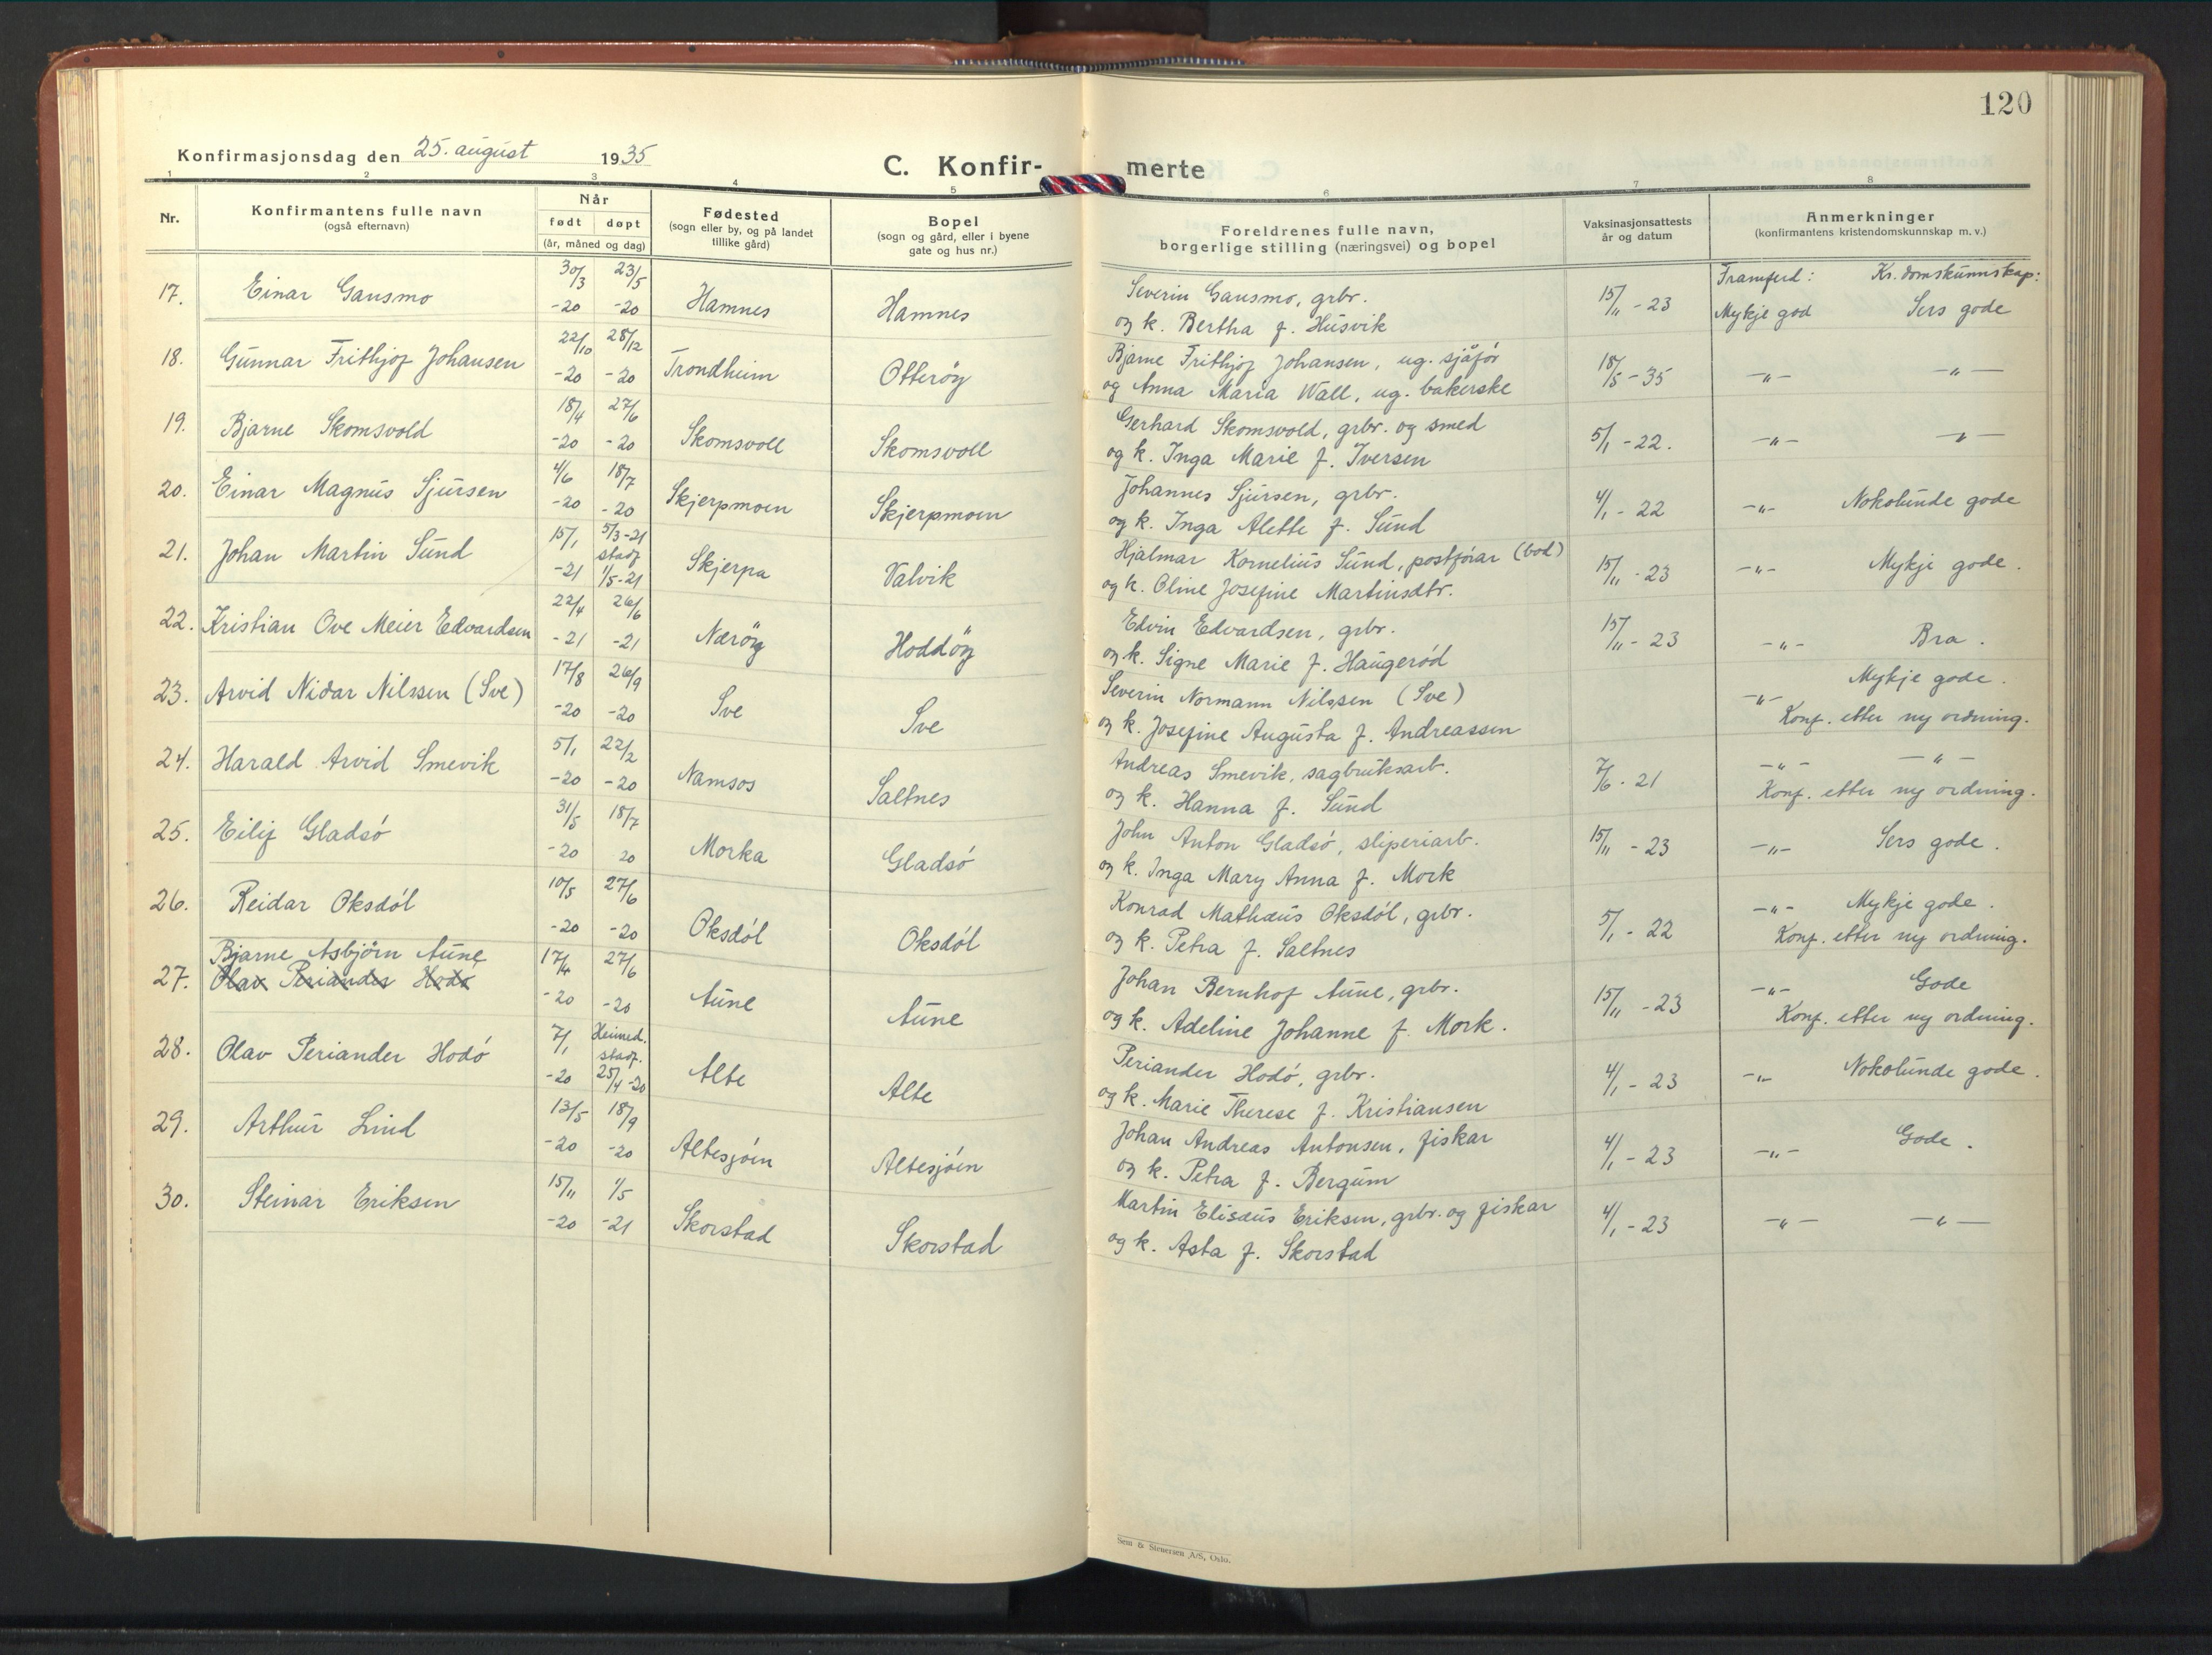 120
Konfirmasjonsdag den 25. august 1935
C. Konfir- merte
1 2 3 4 5 6 7 8
Nr.
Konfirmantens fulle navn
(også efternavn)
Når
født døpt
(år, måned og dag)
Fødested
(sogn eller by, og på landet
tillike gård)
Bopel
(sogn og gård, eller i byene
gate og hus nr.)
Foreldrenes fulle navn,
borgerlige stilling (næringsvei) og bopel
Vaksinasjonsattests
år og datum
Anmerkninger
(konfirmantens kristendomskunnskap m. v.)
Framferd: Kr.domskunnskap:
17. Einar Gansmo 30/3 -20 23/5 -20 Hamnes Hamnes Severin Gansmo, grbr.
og k. Bertha f. Husvik 15/11 -23 Mykje god Sers gode
18. Gunnar Frithjof Johansen 22/10 -20 28/12 -20 Trondheim Otterøy Bjarne Frithjof Johansen, ug. sjåfør
og Anna Maria Wall, ug. bakerske 18/5 -35 -"- -"-
19. Bjarne Skomsvold 18/4 -20 27/6 -20 Skomsvoll Skomsvoll Gerhard Skomsvold, grbr. og smed
og k. Inga Marie f. Iversen 5/1 -22. -"- -"-
20. Einar Magnus Sjursen 4/6 -20 18/7 -20 Skjerpmoen Skjerpmoen Johannes Sjursen, grbr.
og k. Inga Alette f. Sund 4/1 -22 -"- Nokolunde gode
21. Johan Martin Sund 15/1 -21 5/3-21 stadf. 1/5-21 Skjerpa Valvik Hjalmar Kornelius Sund, postførar (bod)
og k. Oline Josefine Martinsdtr. 15/11 -23 -"- Mykje gode.
22. Kristian Ove Meier Edvardsen 22/4 -21 26/6 -21 Nærøy Hoddøy Edvin Edvardsen, grbr.
og k. Signe Marie f. Haugerød 15/11 -23 -"- Bra.
23. Arvid Nidar Nilssen (Sve) 17/8 -20 26/9 -20 Sve Sve Severin Normann Nilssen (Sve)
og k. Josefine Augusta f. Andreassen -"- Mykje gode.
Konf. etter ny ordning.
24. Harald Arvid Smevik 5/1 -20 22/2 -20 Namsos Saltnes Andreas Smevik, sagbruksarb.
og k. Hanna f. Sund 7/6 -21 -"- -"-
Konf. etter ny ordning.
25. Eilif Gladsø 31/5 -20 18/7 20 Morka Gladsø John Anton Gladsø, sliperiarb.
og k. Inga Mary Anna f. Mork 15/11 -23 -"- Sers gode.
26. Reidar Oksdøl 10/5 -20 27/6 -20 Oksdøl Oksdøl Konrad Mathæus Oksdøl, grbr.
og k. Petra f. Saltnes 5/1 -22 -"- Mykje gode.
Konf. etter ny ordning.
Bjarne Asbjørn Aune
27. Olav Periander Hodø 17/4 -20 27/6 -20 Aune Aune Johan Bernhof Aune, grbr.
og k. Adeline Johanne f. Mork. 15/11 -23 -"- Gode
Konf. etter ny ordning.
28. Olav Periander Hodø 7/1 -20 Heimed. stadf. 25/4 -20 Alte Alte Periander Hodø, grbr.
og k. Marie Therese f. Kristiansen 4/1 -23 -"- Nokolunde gode.
29. Arthur Lind 13/5 -20 18/9 -20 Altesjøen Altesjøen Johan Andreas Antonsen, fiskar
og k. Petra f. Bergum 4/1 -23 -"- Gode.
30. Steinar Eriksen 15/11 -20 1/5 -21 Skorstad Skorstad Martin Elisæus Eriksen, grbr. og fiskar
og k. Asta f. Skorstad 4/1 -23 -"- -"-
Sem & Stenersen A/S, Oslo.